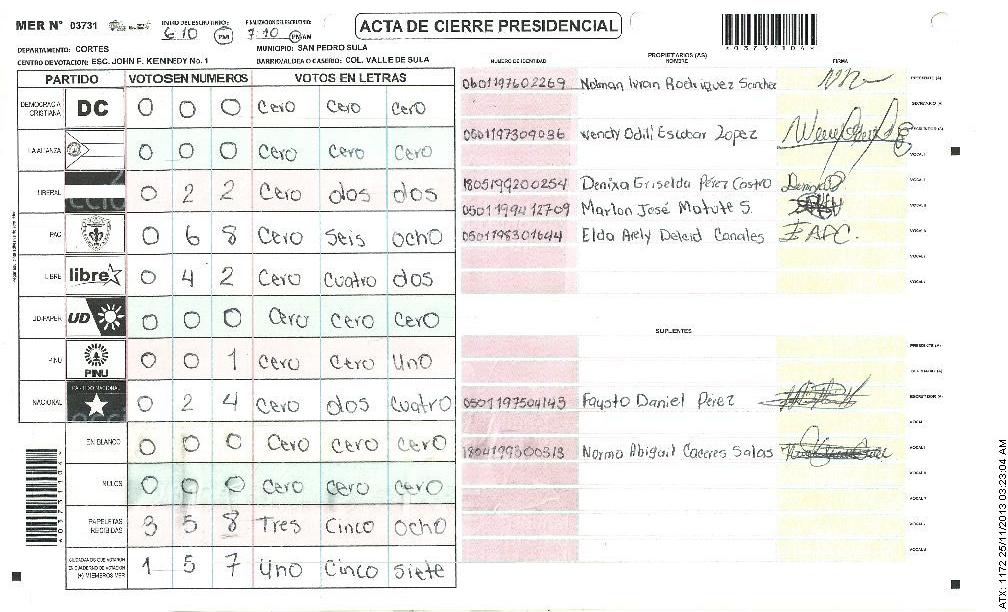 MER N° 03731
INICIO DEL ESCRUTINIO: 6:10 PM
FINALIZACION DEL ESCRUTINIO: 7:10 PM AM
ACTA DE CIERRE PRESIDENCIAL
DEPARTAMENTO: CORTES
MUNICIPIO: SAN PEDRO SULA
CENTRO DE VOTACION: ESC. JOHN F. KENNEDY No. 1
BARRIO/ALDEA O CASERIO: COL. VALLE DE SULA
PARTIDO VOTOS EN NUMEROS VOTOS EN LETRAS
DEMOCRACIA CRISTIANA DC 0 0 0 Cero Cero Cero
LA ALIANZA 0 0 0 Cero Cero Cero
LIBERAL 0 2 2 Cero dos dos
PAC 0 6 8 Cero Seis ocho
LIBRE libre 0 4 2 Cero Cuatro dos
UD/FAPER UD 0 0 0 Cero Cero Cero
PINU PINU 0 0 1 Cero Cero Uno
NACIONAL PARTIDO NACIONAL 0 2 4 Cero dos Cuatro
EN BLANCO 0 0 0 Cero Cero Cero
NULOS 0 0 0 Cero Cero Cero
PAPELETAS RECIBIDAS 3 5 8 Tres Cinco ocho
CIUDADANOS QUE VOTARON EN CUADERNO DE VOTACION (+) MIEMBROS MER 1 5 7 Uno Cinco Siete
PROPIETARIOS (AS)
NUMERO DE IDENTIDAD NOMBRE FIRMA
0601197602269 Nolman Ivan Rodriguez Sanchez PRESIDENTE (A)
SECRETARIO (A)
0501197309036 Wendy Odili Escobar Lopez ESCRUTADOR (A)
VOCAL
1805199200254 Denixa Griselda Pérez Castro VOCAL
0501199412709 Marlon José Matute S. VOCAL
0501198301644 Elda Arely Delcid Canales EADC. VOCAL
VOCAL
VOCAL
SUPLENTES
PRESIDENTE (A)
SECRETARIO (A)
0501197504143 Fausto Daniel Perez ESCRUTADOR (A)
VOCAL
1804199300313 Norma Abigail Caceres Salas VOCAL
VOCAL
VOCAL
VOCAL
VOCAL
ATX: 1172 25/11/2013 03:23:04 AM